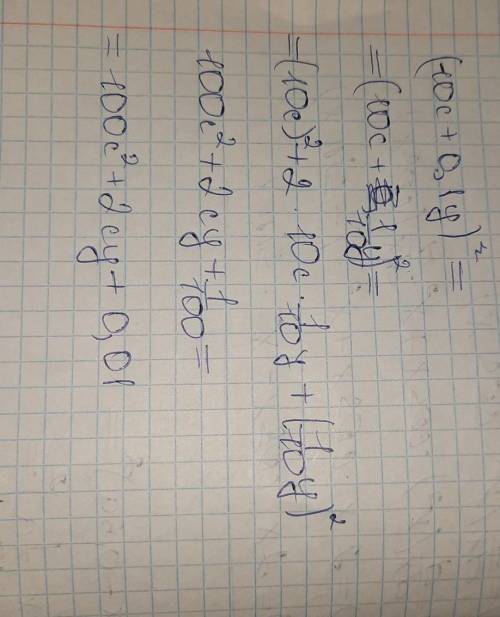 (10c + 0,1y)² =
= (10c + 1/10 y)² =
= (10c)² + 2 · 10c · 1/10 y + (1/10 y)²
100c² + 2cy + 1/100 =
= 100c² + 2cy + 0,01